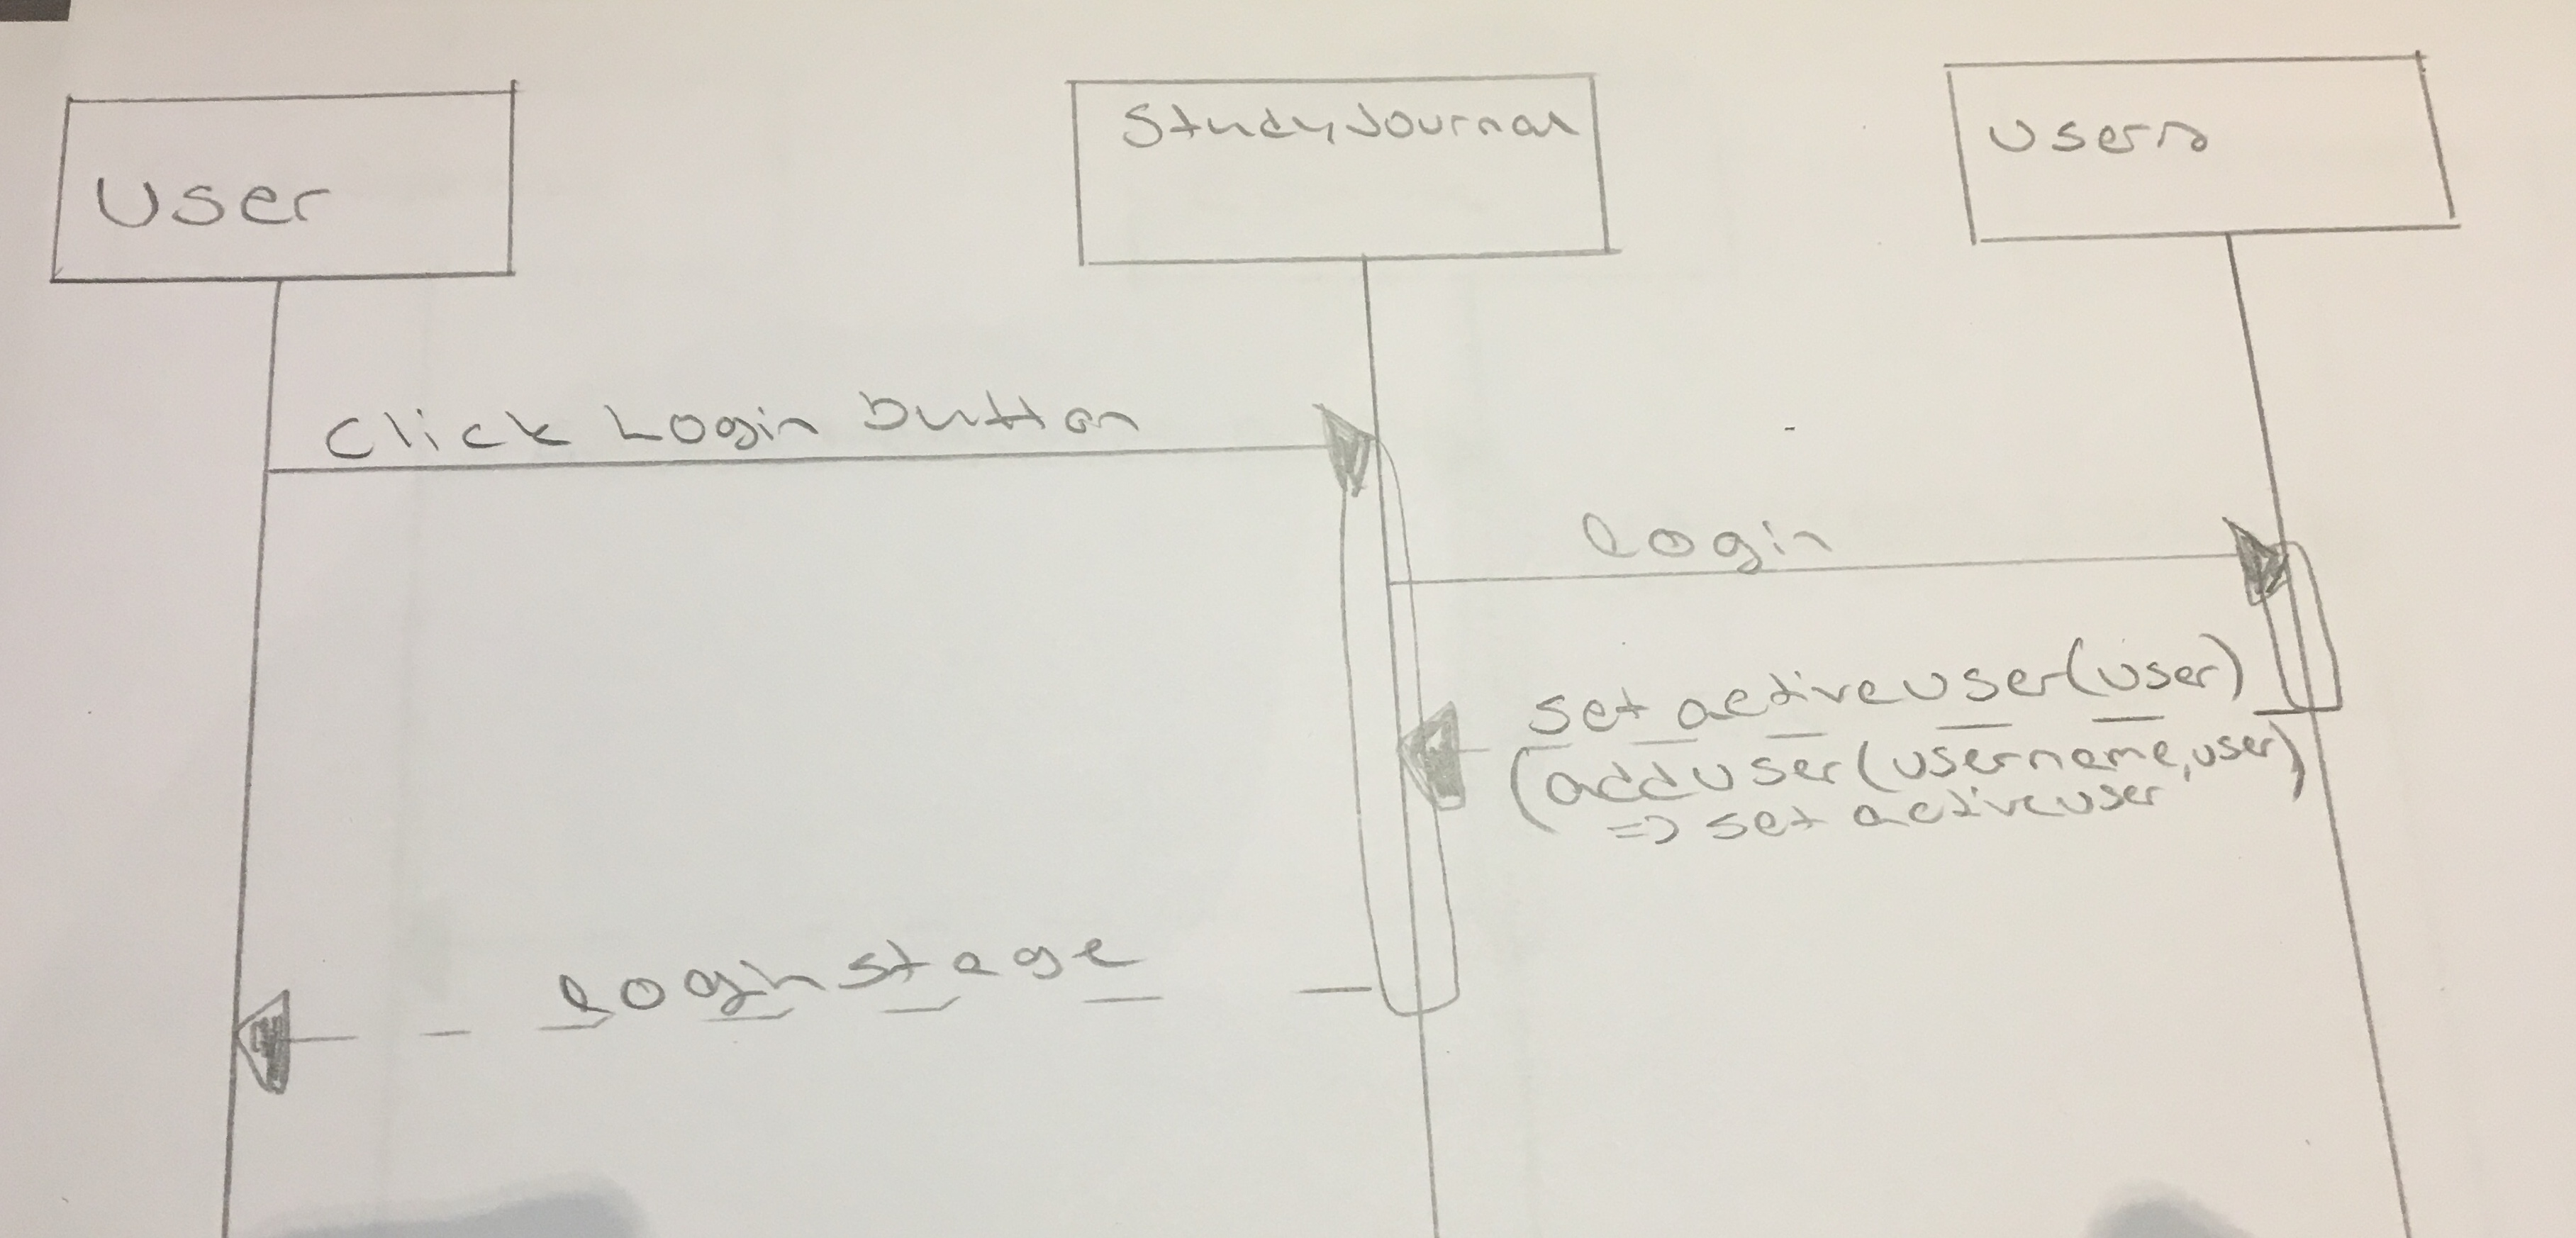 User
StudyJournal
Users
Click Login button
login
set activeuser(user)
(adduser(username,user)
=> set activeuser
loginstage